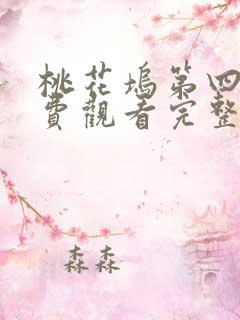 桃花塢第四
費觀看完整
森森